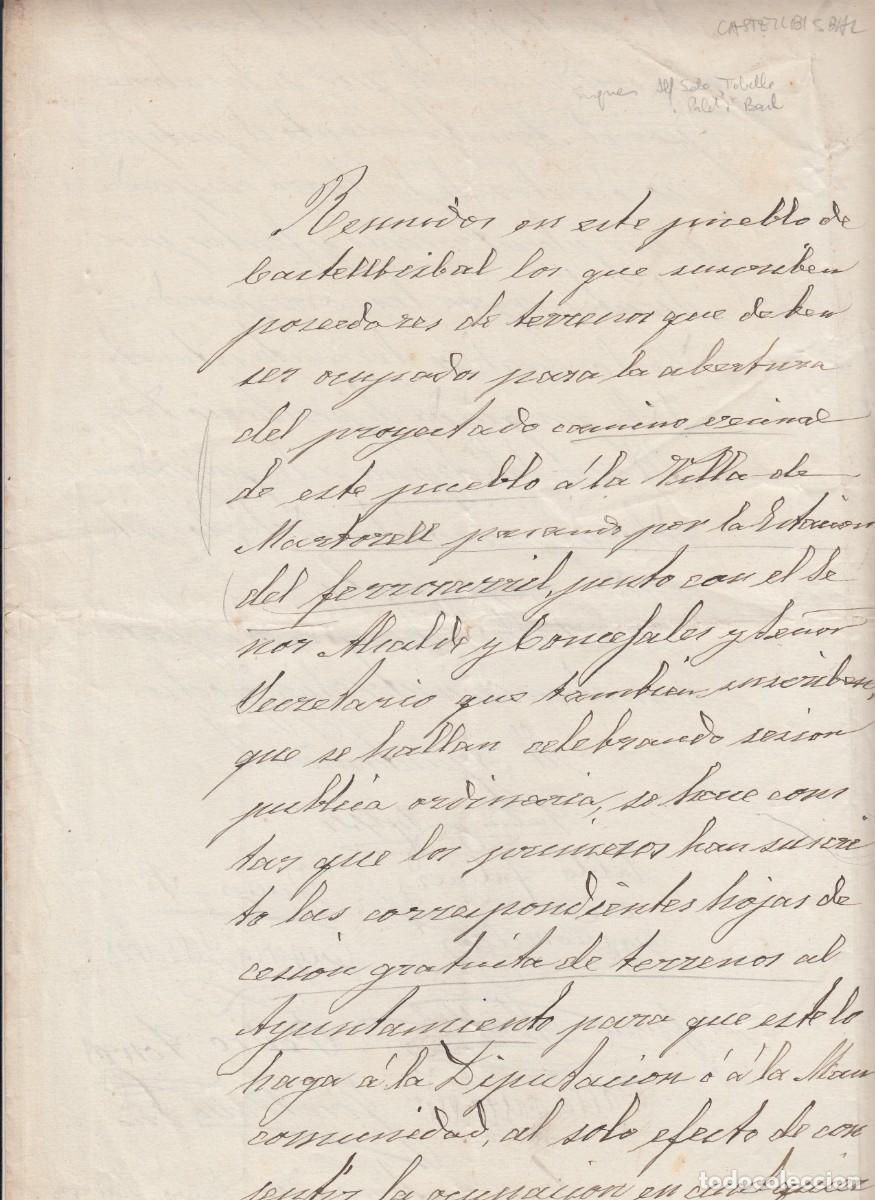 CASTELLBISBAL
Reunidos en este pueblo de
Castellbisbal los que suscriben
poseedores de terrenos que deben
ser ocupados para la abertura
del proyectado camino vecinal
de este pueblo á la Villa de
Martorell pasando por la Estacion
del ferrocarril, junto con el Se
ñor Alcalde y Concejales y señor
Secretario que tambien suscriben,
que se hallan celebrando sesion
publica ordinaria, se hace cons
tar que los primeros han suscri
to las correspondientes hojas de
cesión gratuita de terrenos al
Ayuntamiento para que este lo
haga á la Diputacion ó á la Man
comunidad, al solo efecto de con
sentir la ocupacion en cualquier
todocoleccion